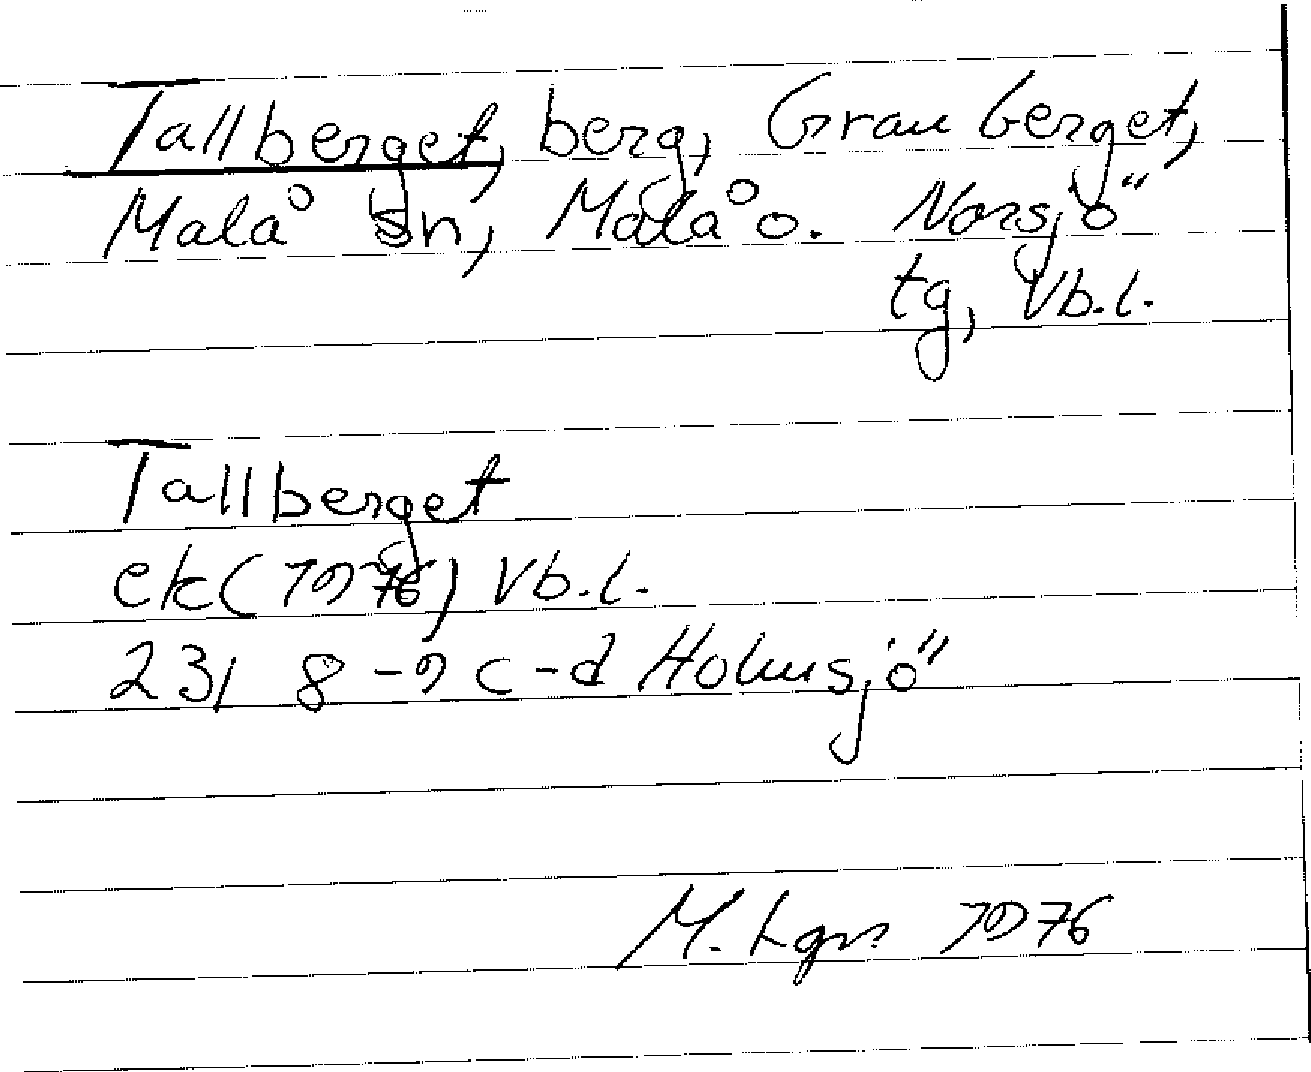 Tallberget, berg, Granberget,
Malå sn, Malå o. Norsjö
tg, Vb.l.
Tallberget
ek (1976) Vb.l.
23I 8-9 c-d Holmsjö
M. Lgn 1976